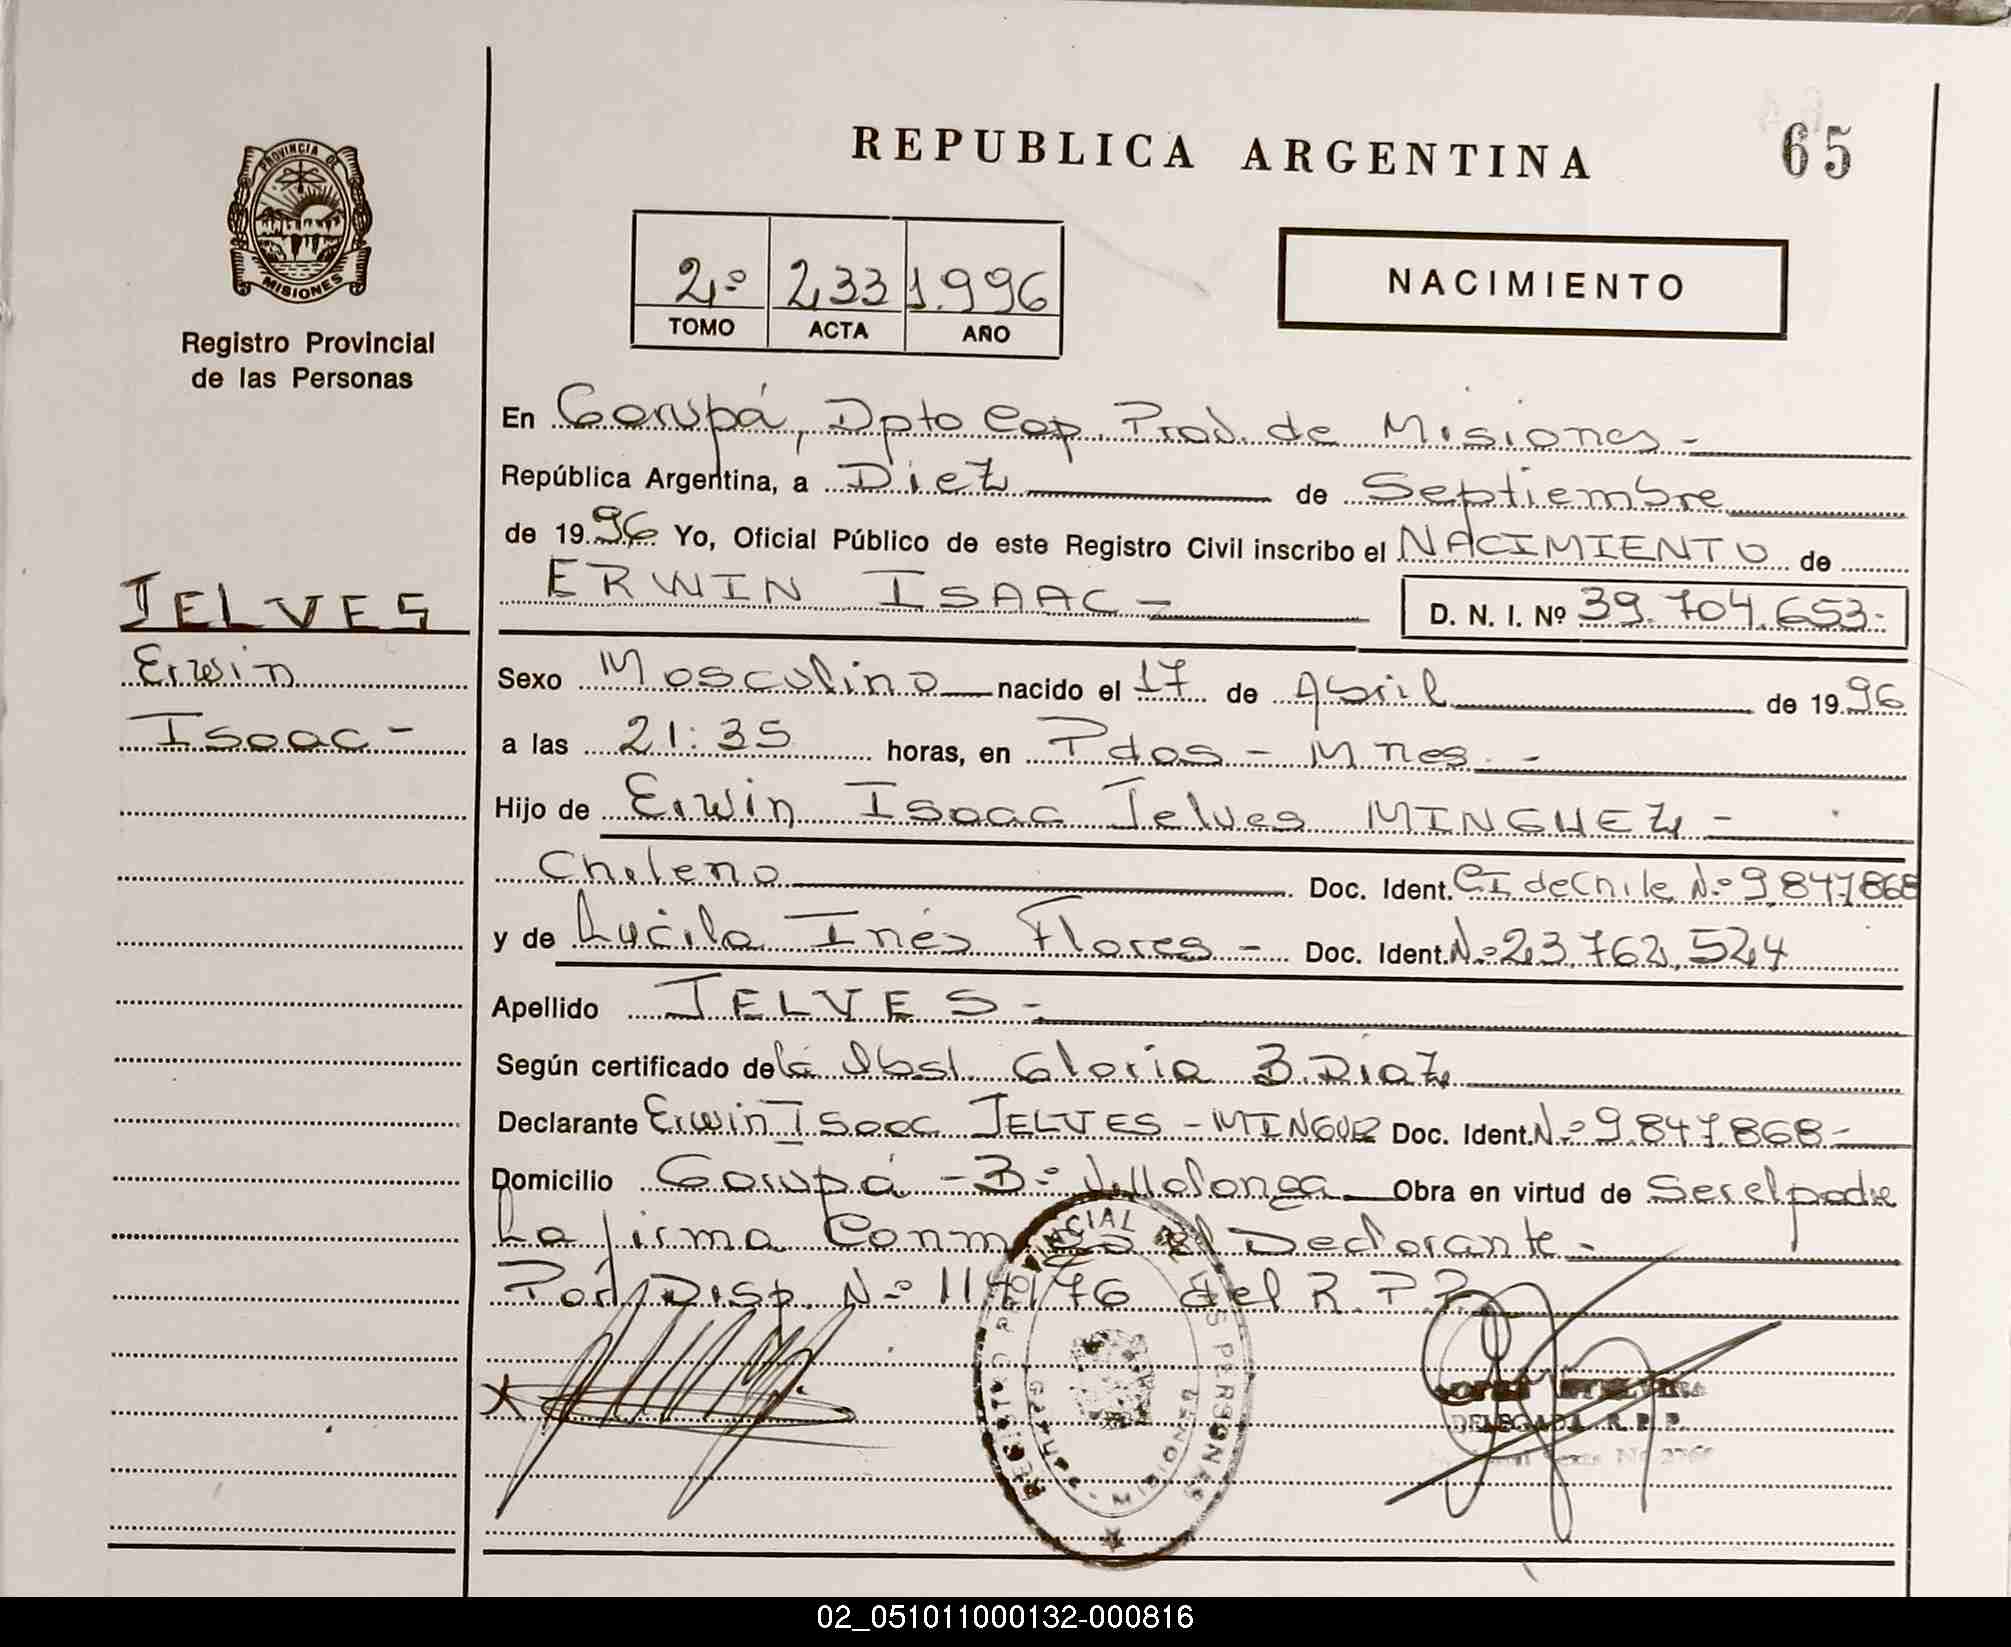 REPUBLICA ARGENTINA
65
PROVINCIA DE
MISIONES
Registro Provincial
de las Personas
2º 233 1.996
TOMO ACTA AÑO
NACIMIENTO
En Garupá, Dpto Cap. Prov. de Misiones -
República Argentina, a Diez de Septiembre
de 1996 Yo, Oficial Público de este Registro Civil inscribo el NACIMIENTO de
ERWIN ISAAC -
D. N. I. Nº 39.704.653-
JELVES
Erwin
Isaac -
Sexo Masculino nacido el 17 de Abril de 1996
a las 21:35 horas, en Pdas - Mnes. -
Hijo de Erwin Isaac Jelves MINGHEZ -
Chileno Doc. Ident. CI de Chile Nº 9.847.868
y de Lucila Inés Flores - Doc. Ident. Nº 23.762.524
Apellido JELVES -
Según certificado de la Obst. Gloria B. Diaz
Declarante Erwin Isaac JELVES - MINGUEZ Doc. Ident. Nº 9.847.868-
Domicilio Garupá - Bº Villalonga Obra en virtud de Ser el padre
La firma Conmigo el Declarante -
Por Disp. Nº 114/76 del R.P.P.
REGISTRO PROVINCIAL DE LAS PERSONAS
GARUPA - MISIONES
DELEGADA R.P.P.
02_051011000132-000816